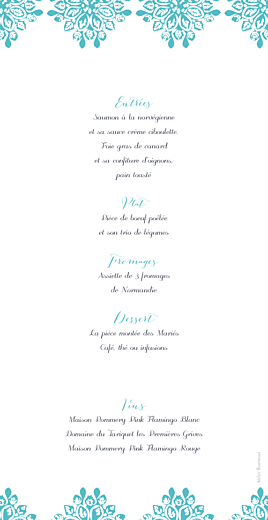 Entrées
Saumon à la norvégienne
et sa sauce crème ciboulette.
Foie gras de canard
et sa confiture d'oignons,
pain toasté
Plat
Pièce de bœuf poêlée
et son trio de légumes
Fromages
Assiette de 3 fromages
de Normandie
Dessert
La pièce montée des Mariés
Café, thé ou infusions
Vins
Maison Pommery Pink Flamingo Blanc
Domaine du Tariquet les Premières Grives
Maison Pommery Pink Flamingo Rouge